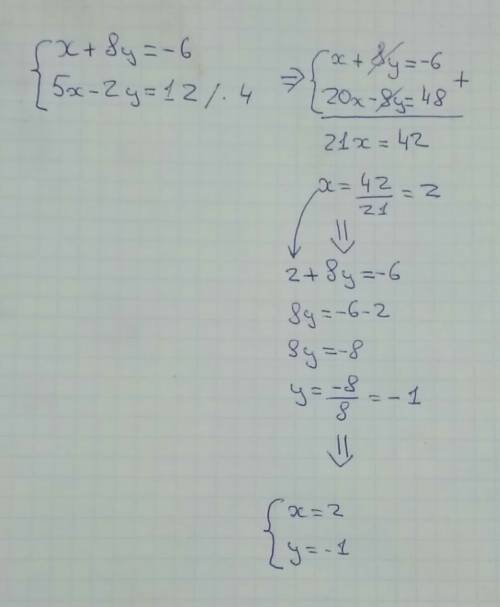 x + 8y = -6
5x - 2y = 12 /· 4
⇒ x + 8y = -6
20x - 8y = 48 +
21x = 42
x = 42/21 = 2
⇓
2 + 8y = -6
8y = -6 - 2
8y = -8
y = -8/8 = -1
⇓
x = 2
y = -1